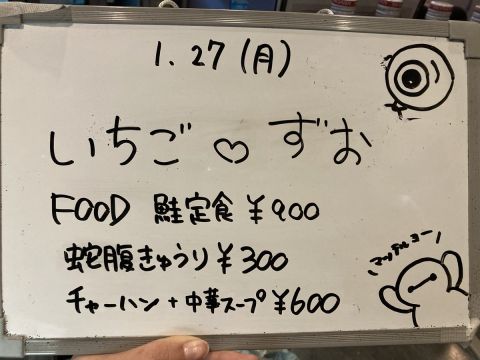 1.27(月)
いちご♡ずお
FOOD 鮭定食 ¥900
蛇腹きゅうり ¥300
チャーハン+中華スープ ¥600
マッチョー